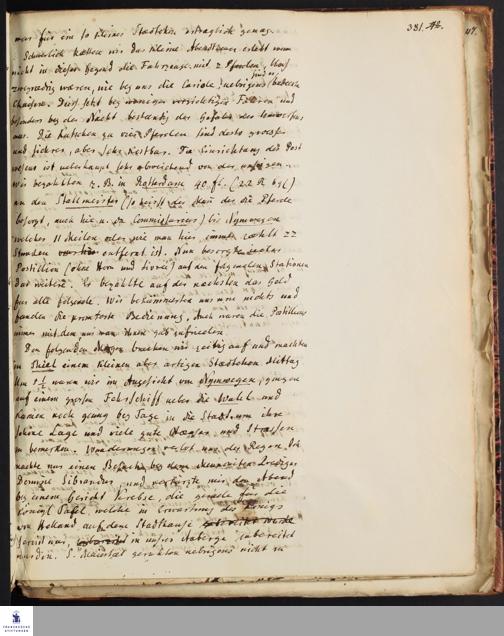 381. Ab.
117.
war für ein so kleines Staedtchen erträglich genug.
Schwerlich haetten wir das kleine Abendteuer erlebt wenn
nicht in dieser Gegend die Fuhrzeuge mit 2 Pferden, blos
zweyraedrig waren, wie bey uns die Cariole,
sind u.
uebrigens bedeckte
Chaisen. Dies setzt bey weniger vorsichtigen Führern und
besonders bey der Nacht bestaendig der Gefahr des
aus. Die Kutschen zu vier Pferden sind desto groesser
und sicherer, aber sehr kostbar. Die Einrichtung des Post
wesens ist ueberhaupt sehr abweichend von der unsrigen.
Wir bezahlten z. B. in Rotterdam 40. fl. (22 R
an den Stallmeister (so heisst der Mann der die Pferde
besorgt, auch hie u. da Commissarius) bis Nymwegen
welches 11 Meilen oder wie man hier zaehlt 22
Stunden entfernt ist. Nun besorgte
Postillion (ohne Horn und Livree) auf den folgenden Stationen
das weitere. Er bezahlte auf der naechsten das Geld
für alle folgende. Wir bekümmerten uns um nichts und
fanden die prompteste Bedienung, auch waren die Postillions
immer mit dem was man ihnen gab zufrieden.
Den folgenden Morgen brachen wir zeitig auf und machten
in Thiel einem kleinen aber artigen Staedtchen Mittag
Um waren wir im Angesicht von Nymwegen, gingen
auf einem grossen Fahrschiff ueber die Wahl und
kamen noch genug bey Tage in die Stadt um ihre
schöne Lage und viele gute Haeuser und Strassen
zu bemerken. Wanderungen verbot uns der Regen. Ich
machte nur einen Besuch bey dem Prediger
Dominé Sibrandus und verkürzte mir den Abend
bey einem Gericht Krebse, die gerade für die
Königl Tafel welche in Erwartung des Königs
von Holland auf dem Stadthause
servirt war, in unsrer Auberge zubereitet
wurden. S. Majestaet geruhten uebrigens nicht zu
FRANCKESCHE
STIFTUNGEN